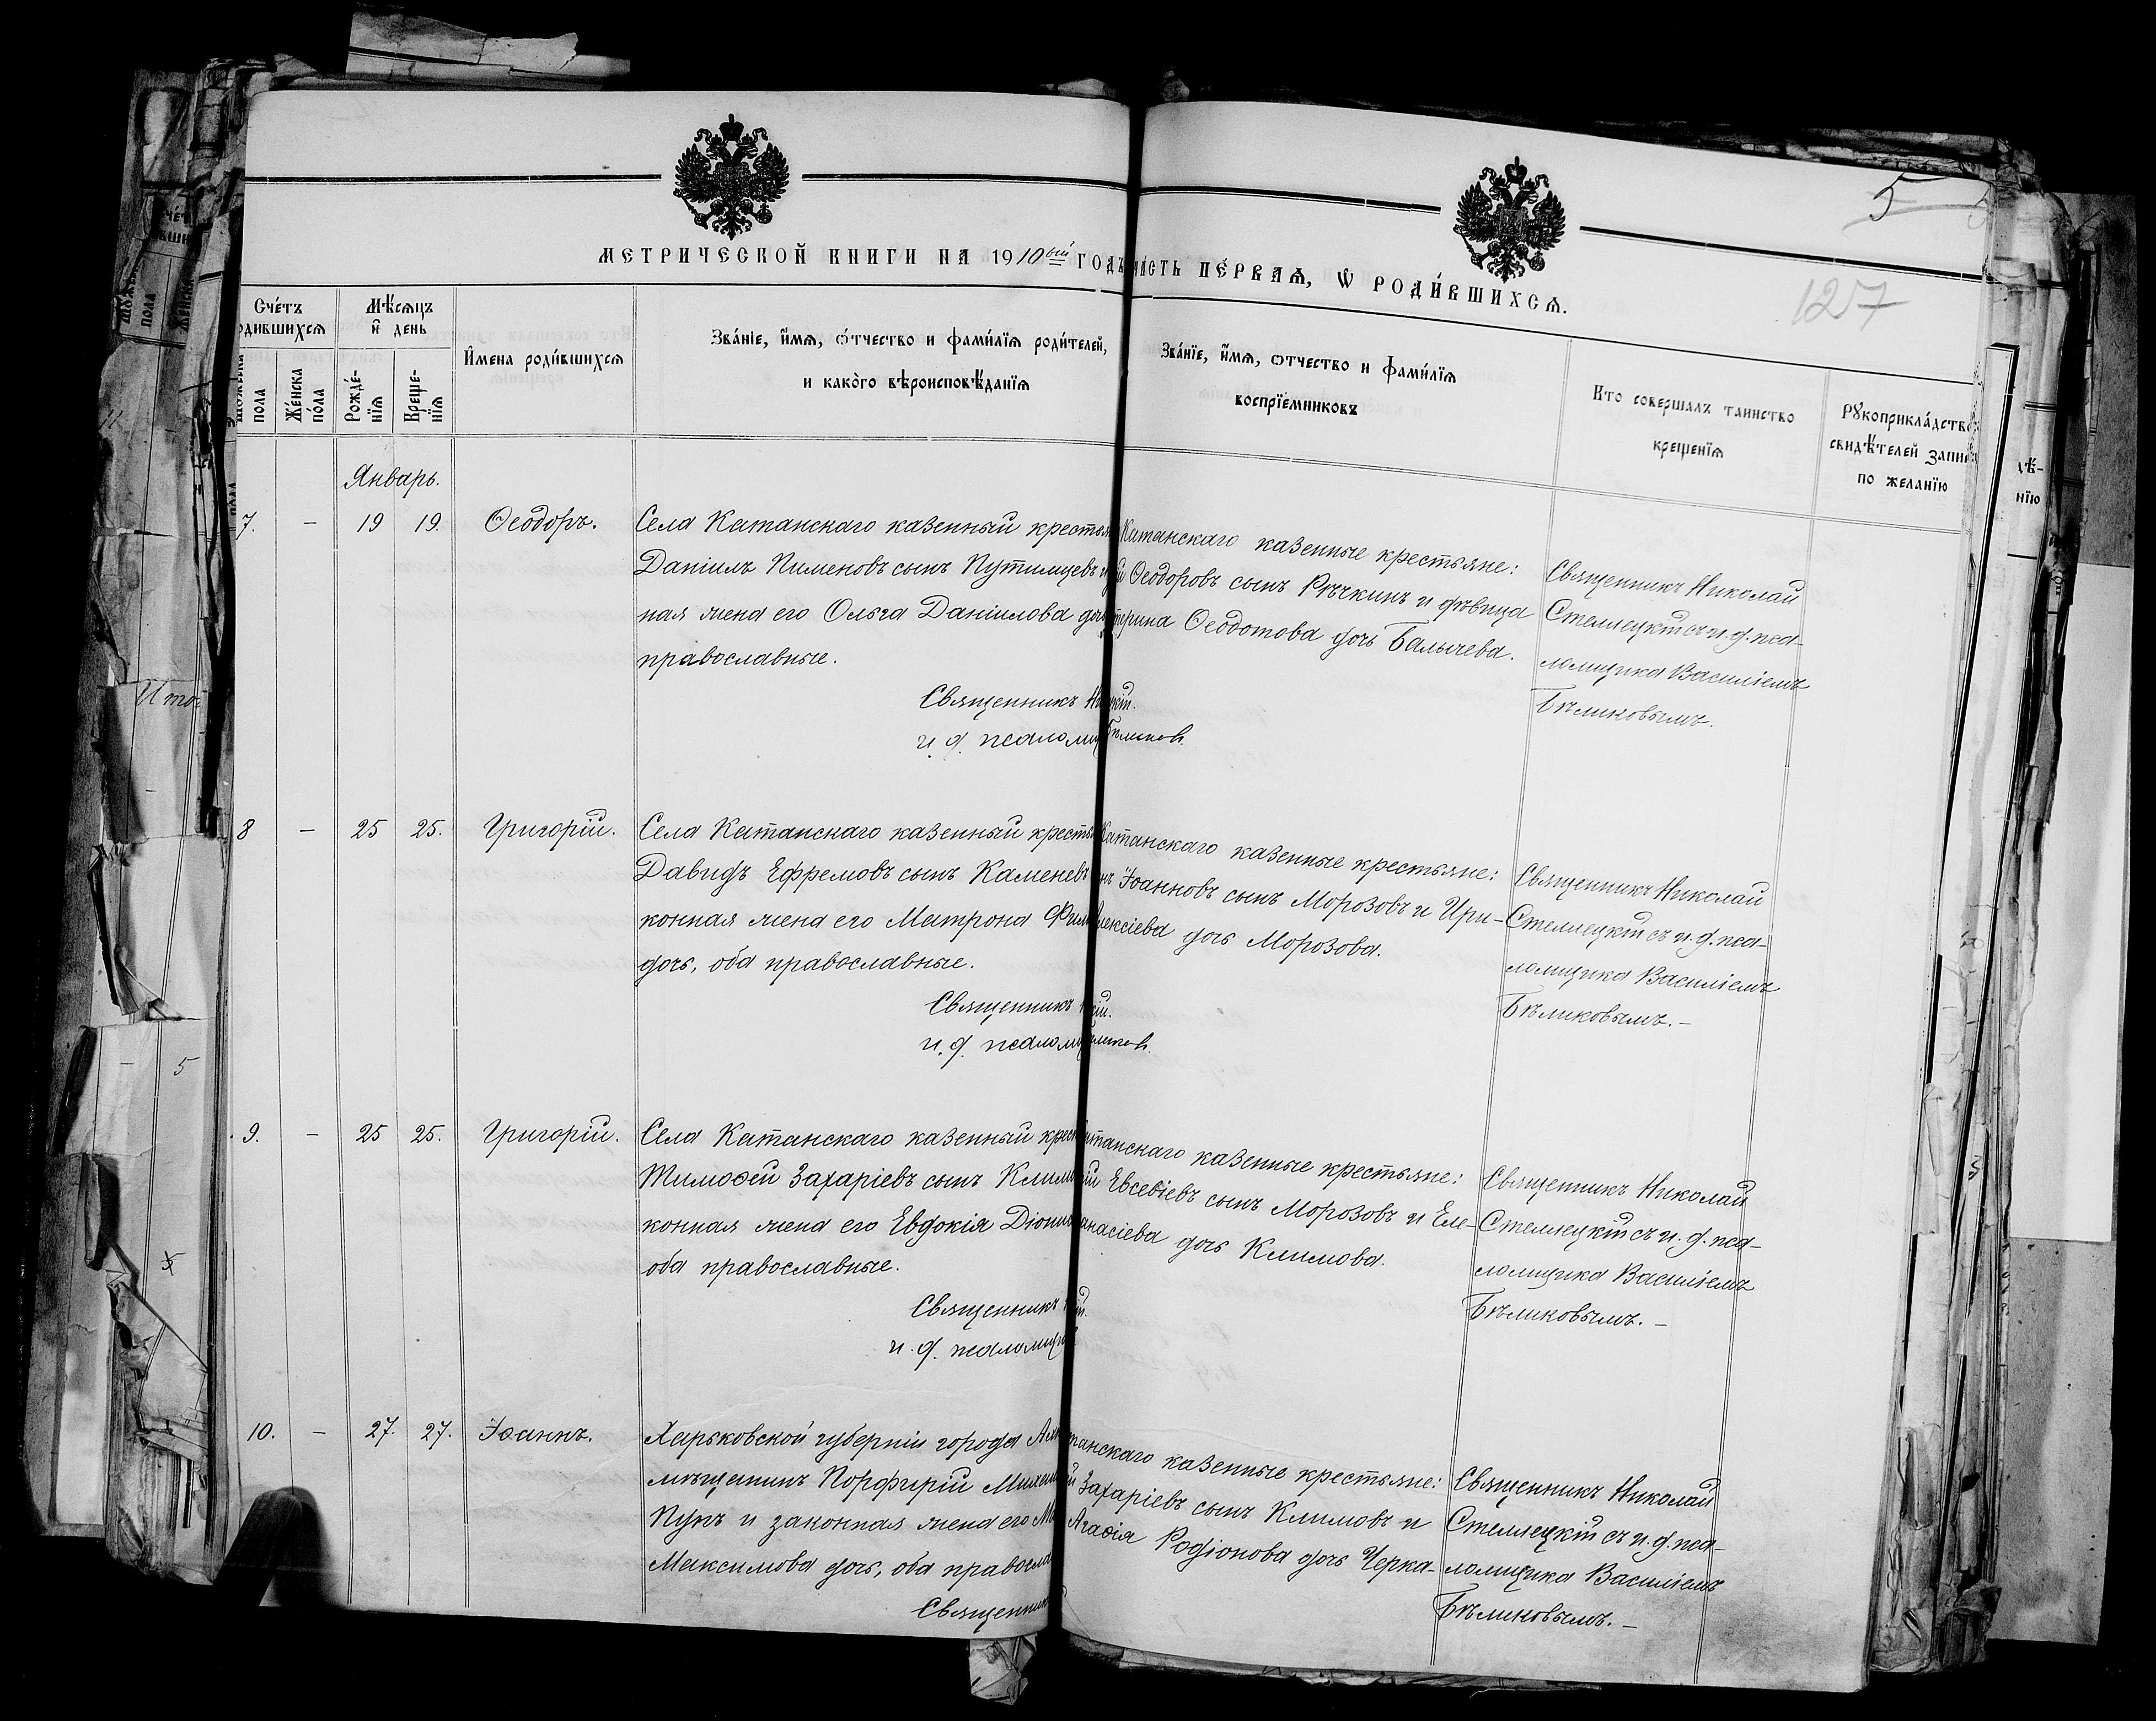 5
127
МЕТРИЧЕСКОЙ КНИГИ НА 1910ый ГОДЪ
ЧАСТЬ ПЕ́РВАѦ, Ѡ РОДИ́ВШИХСѦ.
Сче́тъ
одившихсѧ
пола
Же́нска
по́ла
Мѣ́сѧцъ
и҆ день
Рожде́-
нїѧ
Креще-
нїѧ
И҆мена роди́вшихсѧ
Зва́нїе, и҆́мѧ, ѻ҆́тчество и фами́лїѧ роди́телей,
и како́го вѣроисповѣ́данїѧ
Зва́нїе, и҆́мѧ, ѻтчество и фами́лїѧ
воспрїе́мниковъ
Кто соверша́лъ таинство
крещенїѧ
Рꙋкоприкла́дство
свидѣ́телей запи
по желанїю
Январь.
7. – 19 19. Ѳеодоръ.
Села Катанскаго казенный крестья
Данiилъ Пименовъ сынъ Путилцевъ
ная жена его Ольга Данiилова
православные.
Священникъ
и. д. псалом
Катанскаго казенные крестьяне:
Ѳеодоровъ сынъ Рѣчкинъ и дѣвица
Ѳеодотова дочь Балычева.
Священникъ Николай
Стеллецкiй съ и. д. пса-
ломщика Василiемъ
Бѣликовымъ.
8 – 25 25. Григорiй.
Села Катанскаго казенный кресть
Давидъ Ефремовъ сынъ Каменевъ
конная жена его Матрона Фил
дочь, оба православные.
Священникъ
и. д. псалом
Катанскаго казенные крестьяне:
Iоанновъ сынъ Морозовъ и Ири-
лексiева дочь Морозова.
Священникъ Николай
Стеллецкiй съ и. д. пса-
ломщика Василiемъ
Бѣликовымъ. –
9. – 25 25. Григорiй.
Села Катанскаго казенный крес
Тимоѳей Захарiевъ сынъ Клим
конная жена его Евдокiя Дiони
оба православные.
Священникъ
и. д. псаломщи
танскаго казенные крестьяне:
Евсевiевъ сынъ Морозовъ и Еле-
анасiева дочь Климова.
Священникъ Николай
Стеллецкiй съ и. д. пса-
ломщика Василiемъ
Бѣликовымъ. –
10. – 27. 27. Iоаннъ.
Харьковской губернiи города
мѣщанинъ Порфирiй Михаи
Пукъ и законная жена его
Максимова дочь, оба правосла
Священник
танскаго казенные крестьяне:
Захарiевъ сынъ Климовъ и
Агаѳiя Родiонова дочь Черка-
Священникъ Николай
Стеллецкiй съ и. д. пса-
ломщика Василiемъ
Бѣликовымъ. –